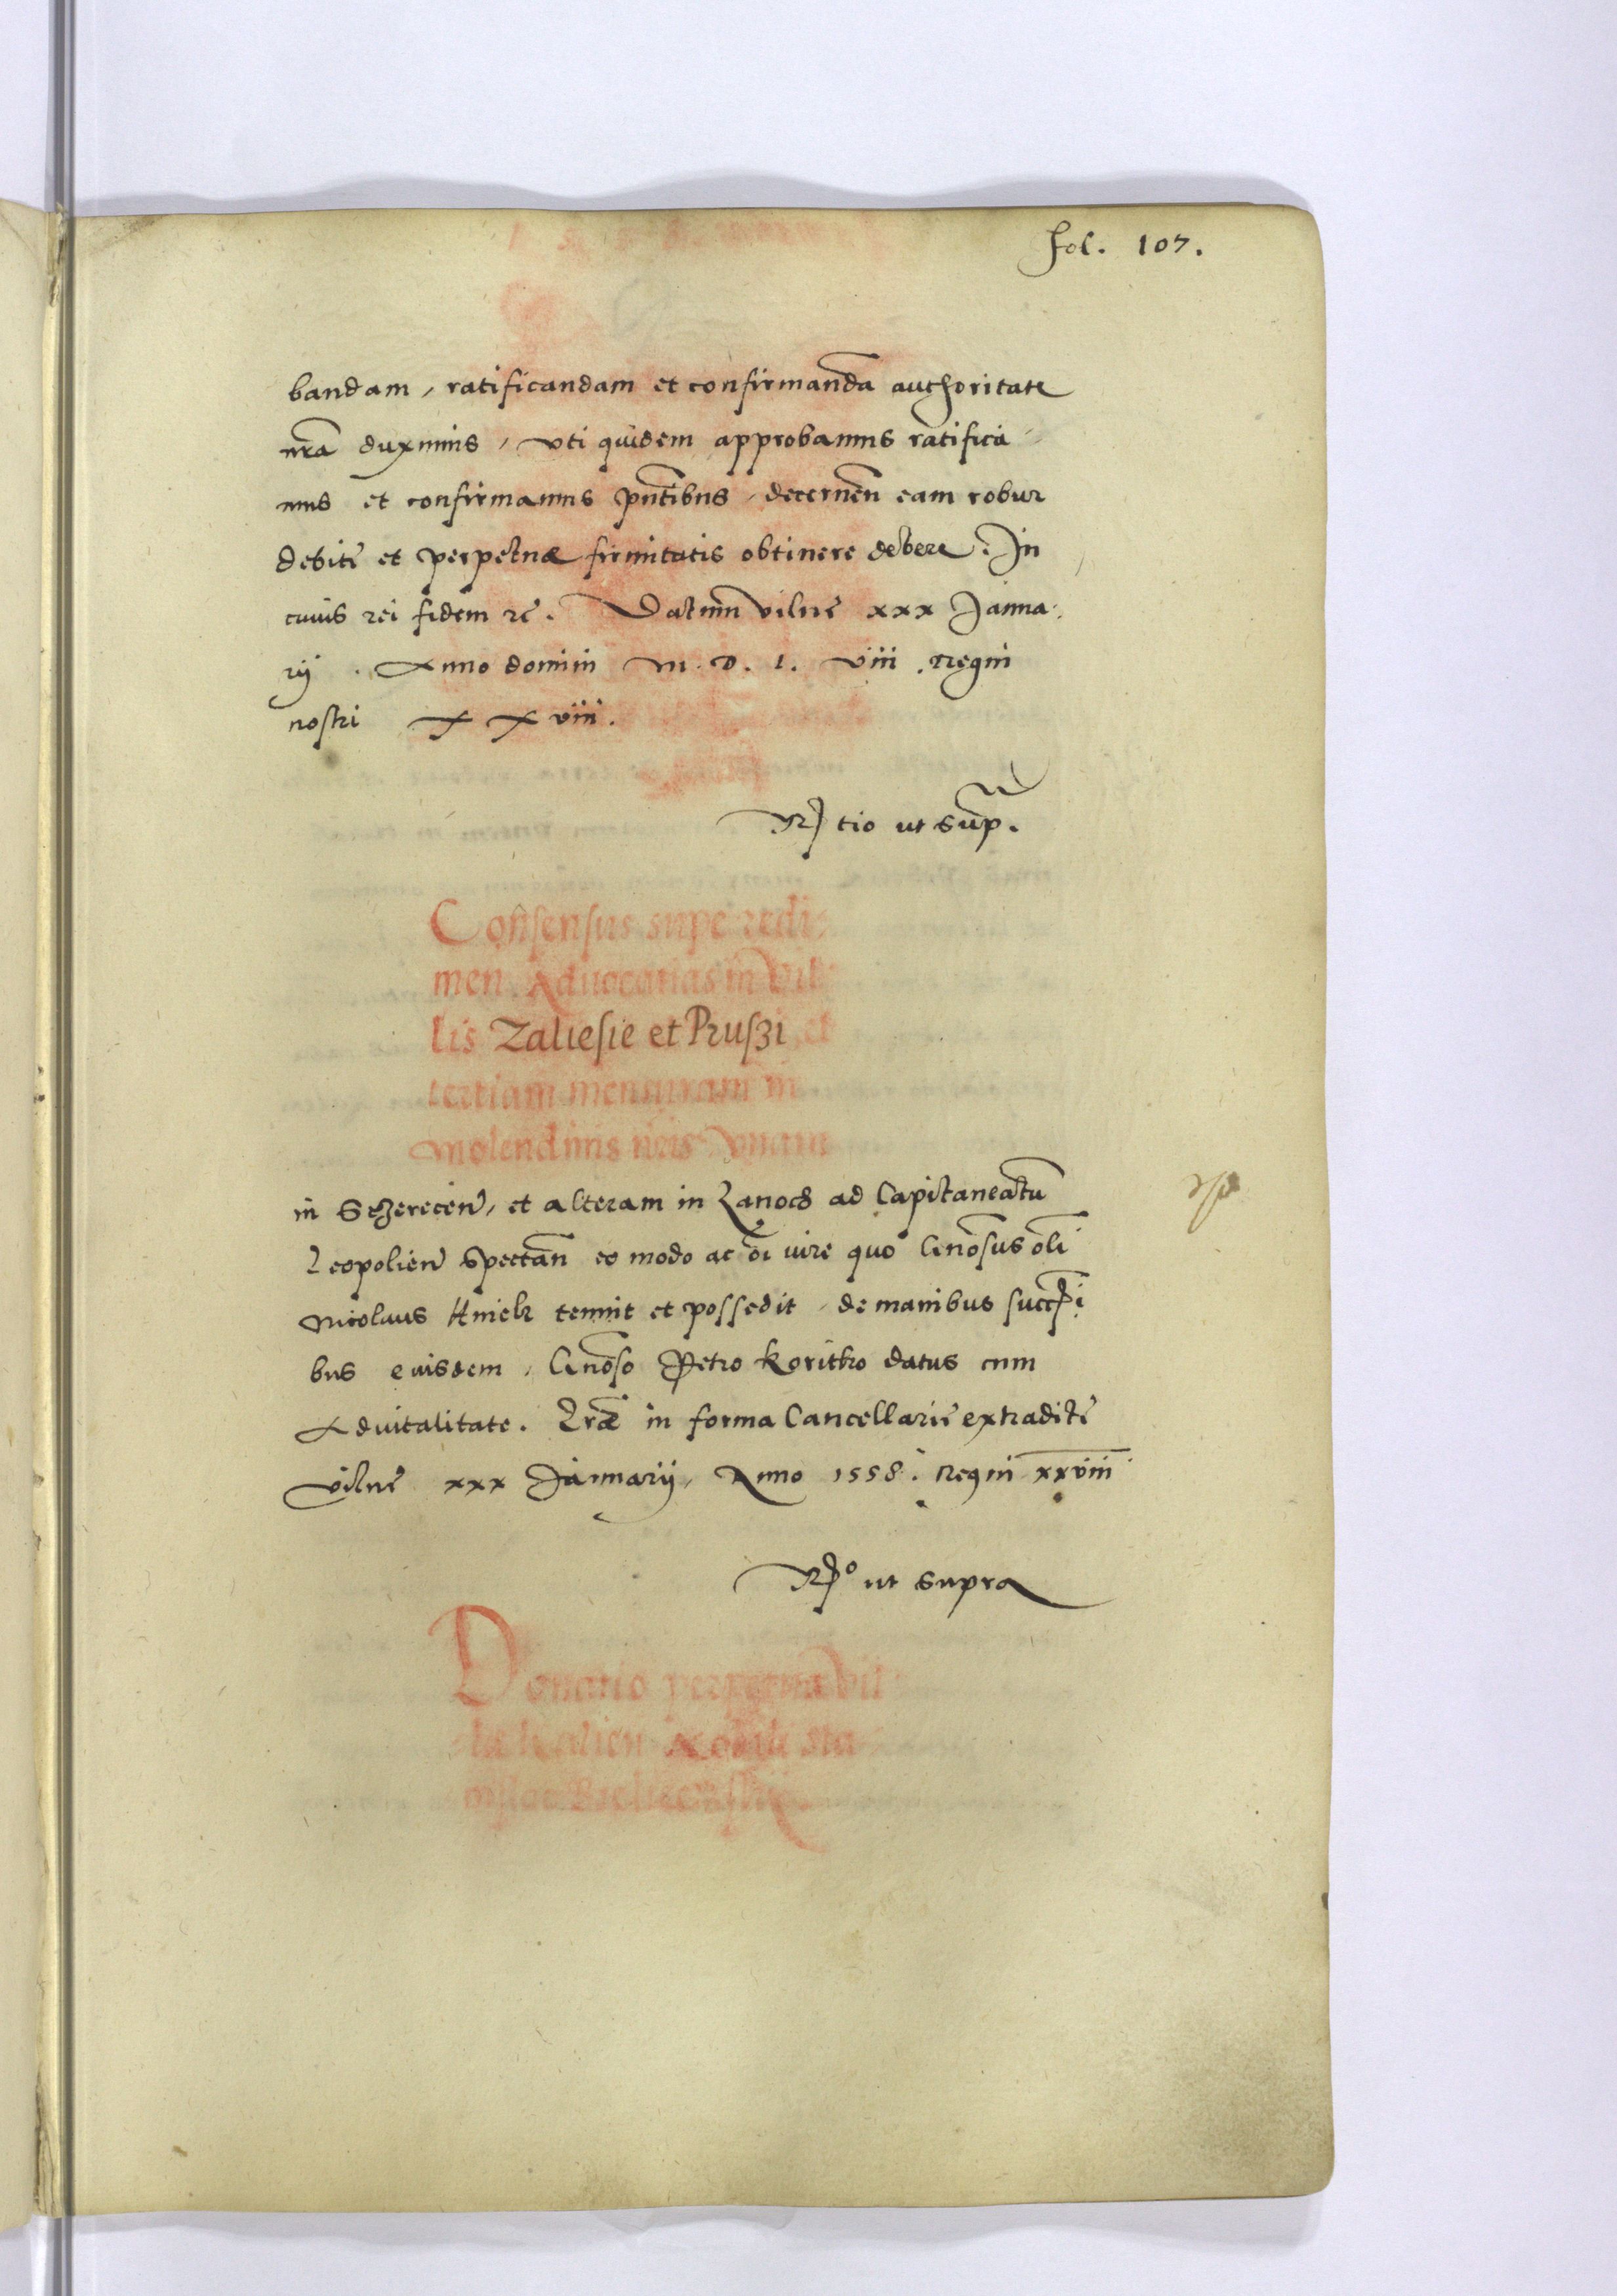 fol. 107.
bandam, ratificandam et confirmandã authoritate
nrã duximus, vti quidem approbamus ratifica
mus et confirmamus pñtibus, decerneñ eam robur
debitę et perpetuæ firmitatis obtinere debere. In
cuius rei fidem rę. Datum Vilnę xxx Janua:
rij. Anno domini M. D. L. viii. Regni
nostri X X viii.
R̃tio ut sup.
Consensus super redi
men. Aduocatias in Vil
lis Zaliesie et Pruszi et
tertiam mensuram in
molendinis nr̃is Vnam
in Sczereceñ, et alteram in Zanocz ad Capitaneatũ
Leopolieñ spectañ eo modo ac oĩ iure quo Gñosus olĩ
Nicolaus Hmielz tenuit et possedit, de manibus succ̃i
bus eiusdem, Gñoso Petro Koritko datus cum
Aduitalitate. Lræ in forma Cancellarię extraditę
Vilnę xxx Januarij, Anno 1558. Regni xxviii
R̃o ut supra
Donatio perpetua vil
læ Kalień Nobili Sta
nislao